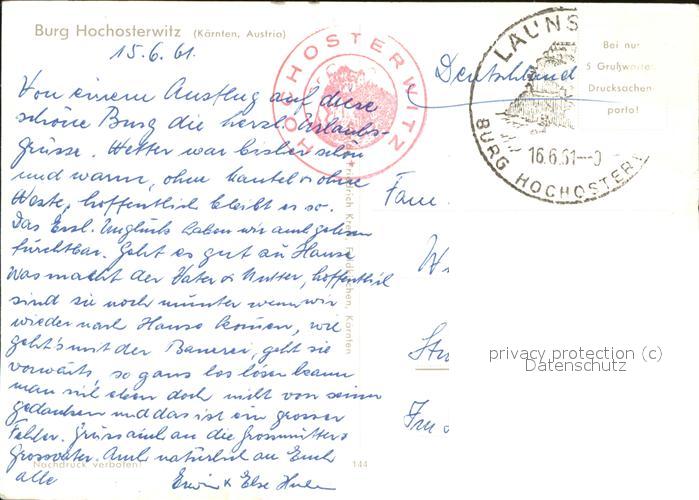 Burg Hochosterwitz (Kärnten, Austria)
15.6.61.
Von einem Ausflug auf diese
schöne Burg die herzl. Urlaubs-
grüsse. Wetter war bisher schön
und warm, ohne Mantel & ohne
Weste, hoffentlich bleibt es so.
Das Unglück haben wir auch gelesen
furchtbar. Geht es gut zu Hause
was macht der Vater & Mutter, hoffentlich
sind sie noch munter wenn wir
wieder nach Hause kommen, wie
geht's mit der Bauerei, geht sie
vorwärts, so ganz los lösen kann
man sich eben doch nicht von seinen
gedanken und das ist ein grosser
Fehler. Grüss auch an die Grossmutter &
Grossvater. Auch natürlich an Euch
alle
Erwin & Else
Nachdruck verboten!
144
HOCHOSTERWITZ
Kärnten
Deutschland
LAUNS
16.6.61
BURG HOCHOSTERW
Bei nur
5 Grußworten
Drucksachen
porto!
Fam.
privacy protection (c)
Datenschutz